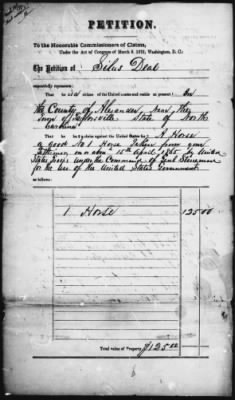 PETITION.
To the Honorable Commissioners of Claims,
Under the Act of Congress of March 3, 1871, Washington, D. C.:
The Petition of Silus Deal
respectfully represents:
That he is a citizen of the United States and resides at present: In
the County of Alexander, near the
Town of Taylorsville State of North
Carolina
That he has a claim against the United States for A Horse
a good No 1 Horse Taken from your
Petitioner on or about 15th April 1865 by United
States Troops under the Command of Genl Stoneman
for the use of the United States Government.
as follows:
1 Horse 125 00
Total value of Property, $125 00